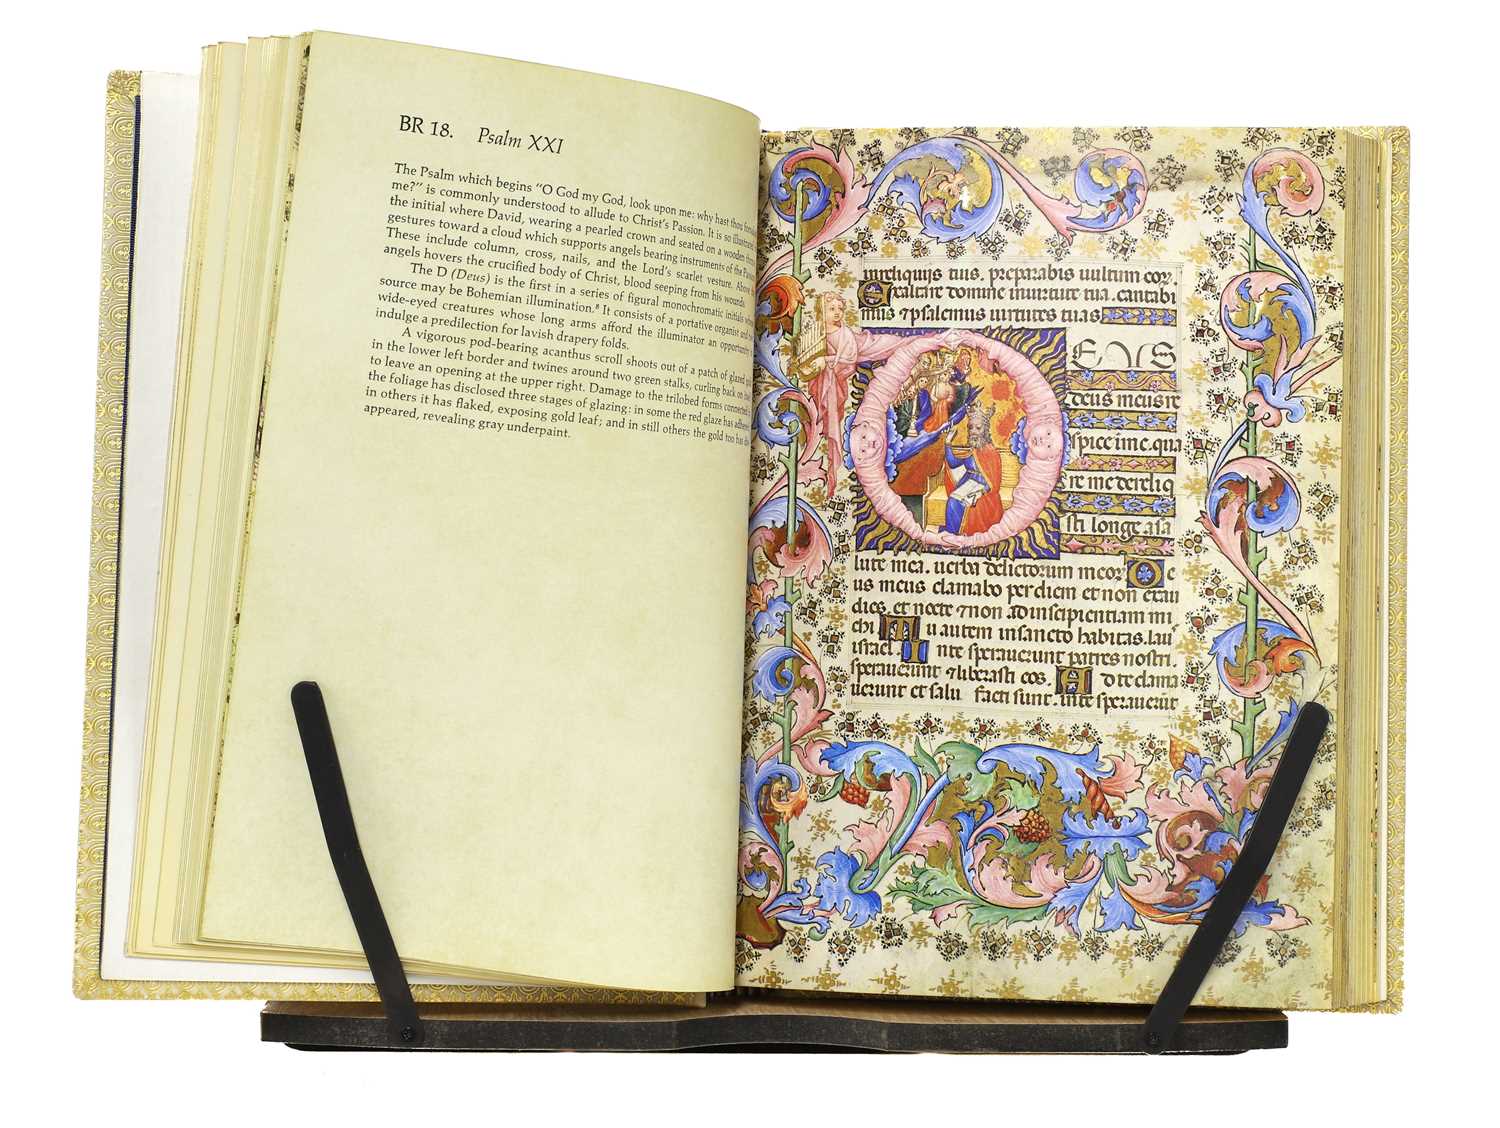 BR 18. Psalm XXI
The Psalm which begins "O God my God, look upon me: why hast thou
me?" is commonly understood to allude to Christ's Passion. It is so
the initial where David, wearing a pearled crown and seated on a wooden
gestures toward a cloud which supports angels bearing instruments of the
These include column, cross, nails, and the Lord's scarlet vesture.
angels hovers the crucified body of Christ, blood seeping from his wounds.
The D (Deus) is the first in a series of figural monochromatic initials
source may be Bohemian illumination.⁸ It consists of a portative organist and
wide-eyed creatures whose long arms afford the illuminator an opportunity
indulge a predilection for lavish drapery folds.
A vigorous pod-bearing acanthus scroll shoots out of a patch of glazed
in the lower left border and twines around two green stalks, curling back on
to leave an opening at the upper right. Damage to the trilobed forms connected
the foliage has disclosed three stages of glazing: in some the red glaze has
in others it has flaked, exposing gold leaf; and in still others the gold too has
appeared, revealing gray underpaint.
inreliquijs tuis. preparabis uultum cor.
Exaltare domine inuirtute tua. cantabi
mus & psalemus uirtutes tuas
DEUS
deus meus re
spice ime. qua
re me dereliq
sti longe asa
lute mea. uerba delictorum meor De
us meus clamabo per diem et non exau
dies. et nocte & non ad insipientiam mi
chi Tu autem insancto habitas. lau
israel. Inte sperauerunt patres nostri.
sperauerunt & liberasti eos. Ad te clama
uerunt et salui facti sunt. inte sperauerunt